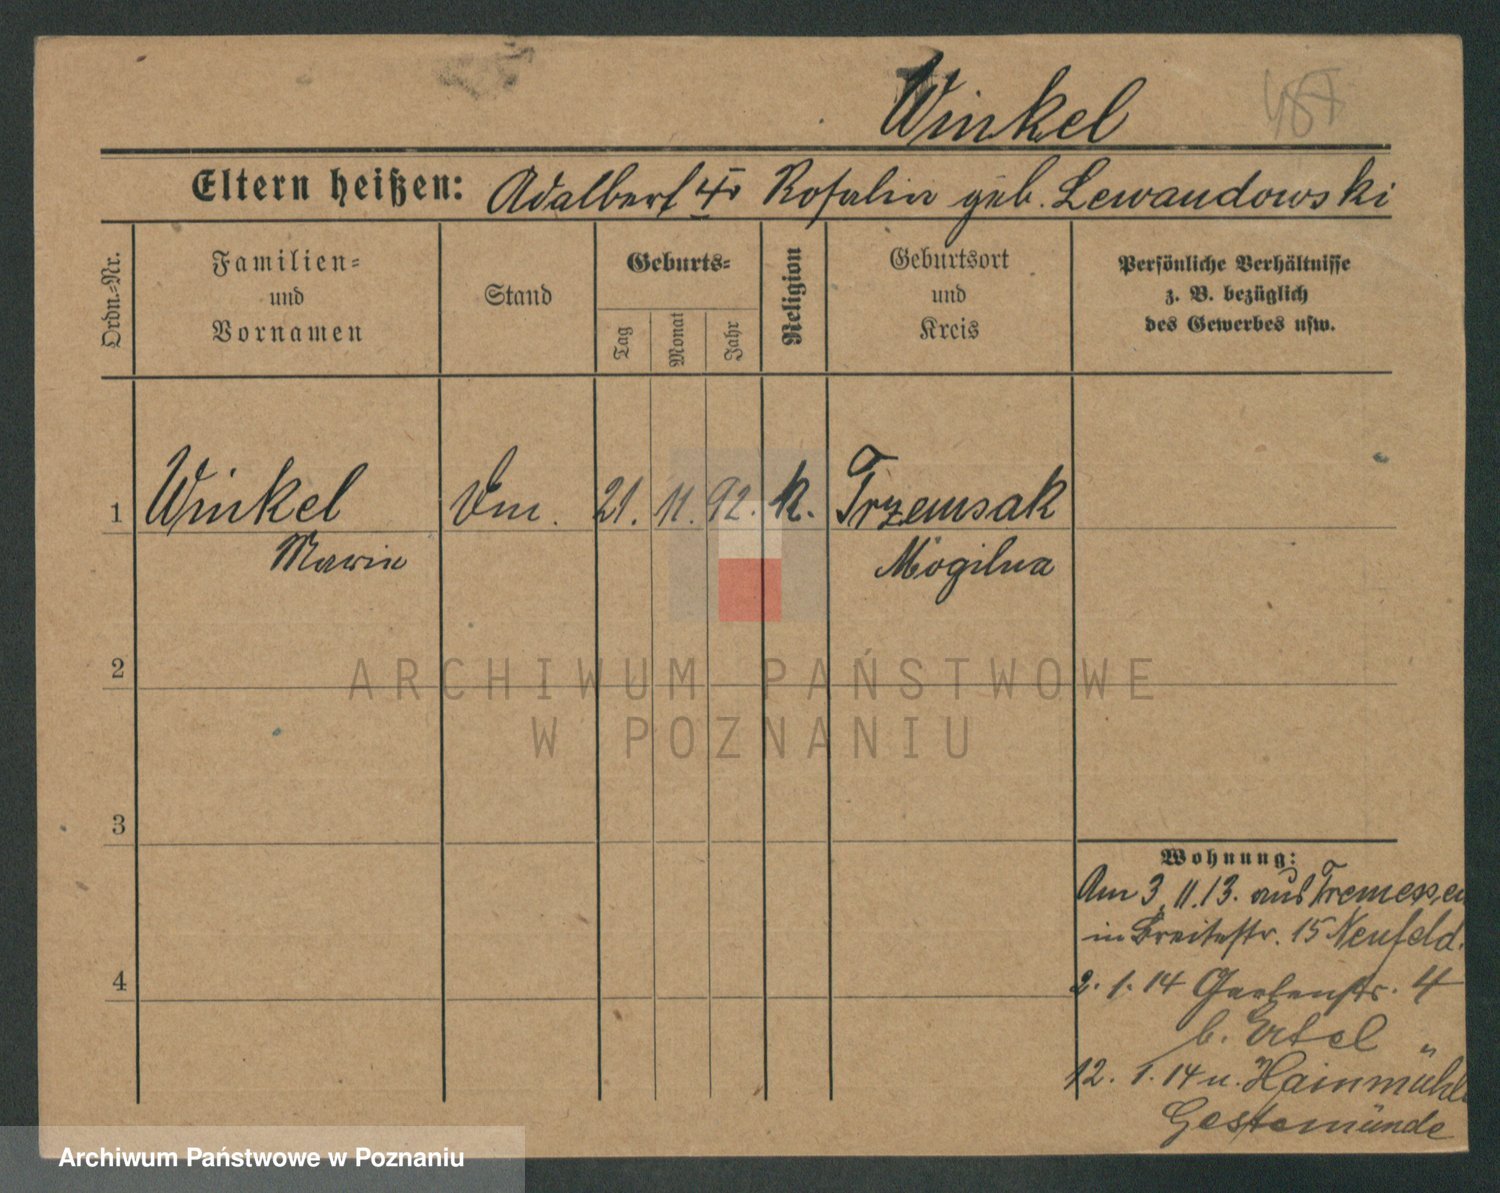 Winkel
Eltern heißen: Adalbert u. Rosalia geb. Lewandowski
Ordn.-Nr.
Familien-
und
Vornamen
Stand
Geburts-
Tag
Monat
Jahr
Religion
Geburtsort
und
Kreis
Persönliche Verhältnisse
z. B. bezüglich
des Gewerbes usw.
1 Winkel 21. 11. 92. k. Trzemsak
Marie Mogilna
2
ARCHIWUM PAŃSTWOWE
W POZNANIU
3
Wohnung:
Am 3.11.13. aus Tremessen
in Breitestr. 15 Neufeld.
4
2. 1. 14 Gartenstr. 4
b. Ertel "
12. 1. 14 n. Hainmühle
Gestemünde
Archiwum Państwowe w Poznaniu